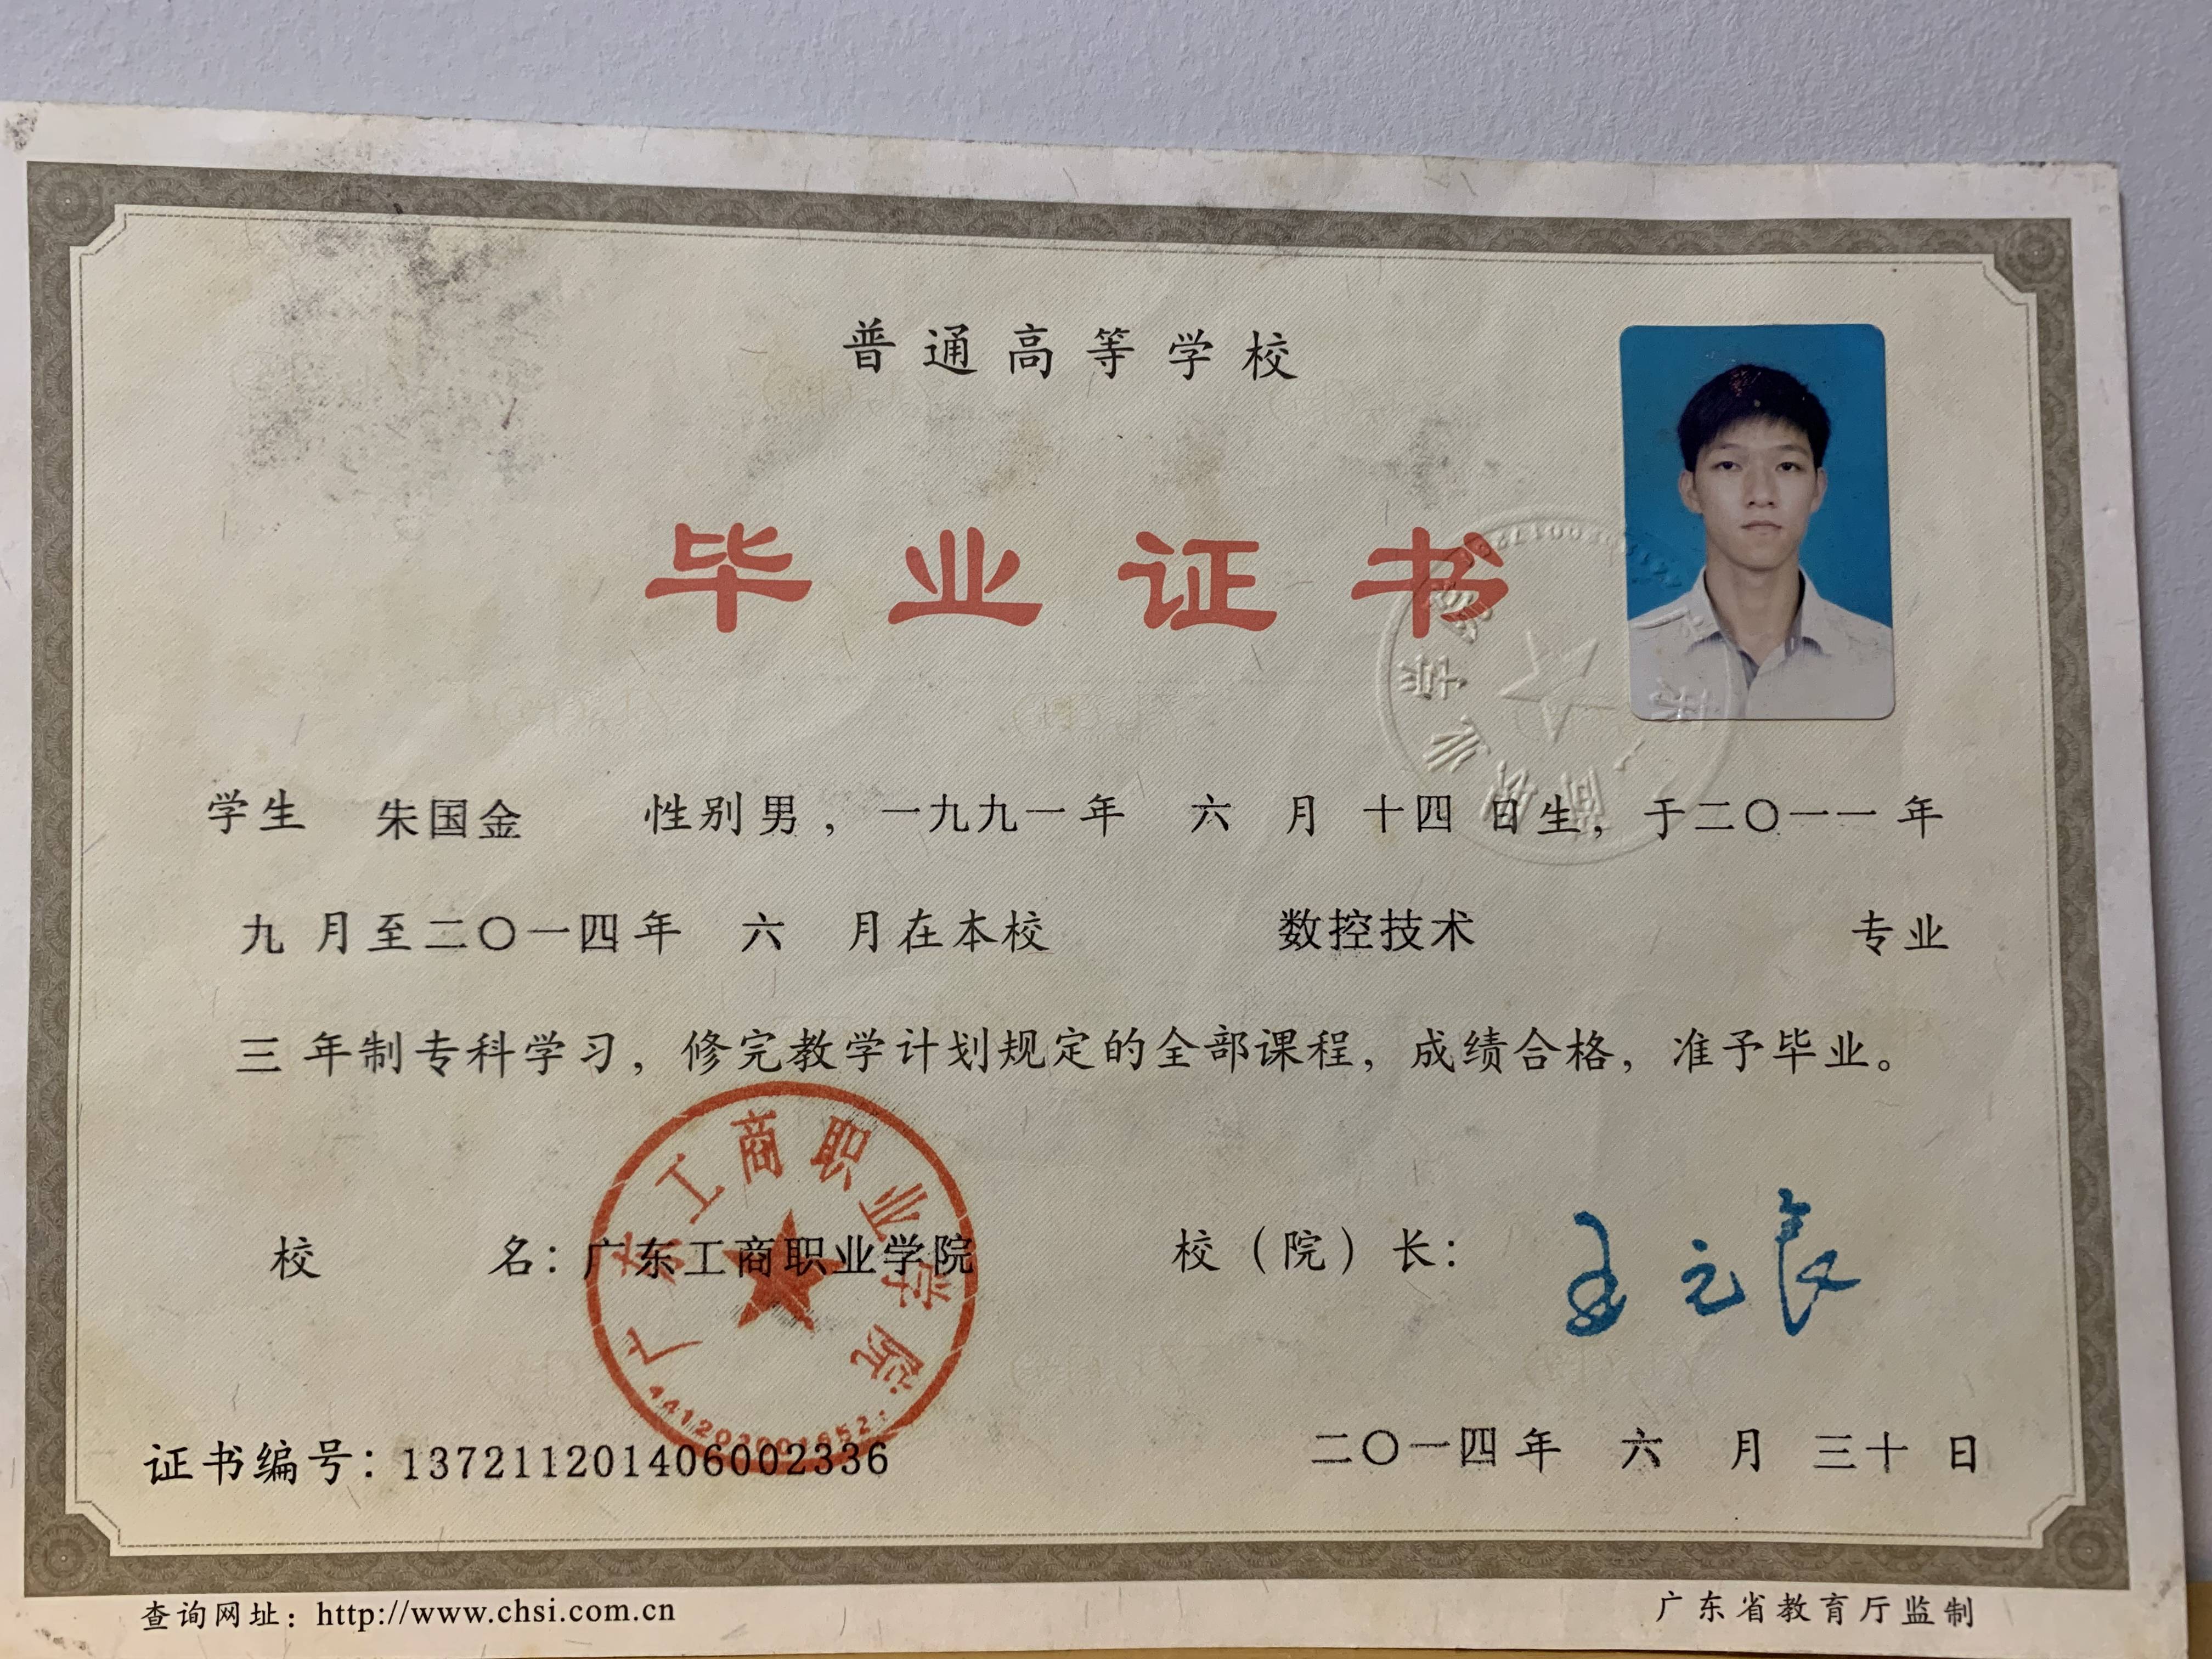 普通高等学校
毕业证书
学生 朱国金 性别男，一九九一年 六 月 十四 日生，于二〇一一年
九 月至二〇一四年 六 月在本校 数控技术 专业
三 年制专科学习，修完教学计划规定的全部课程，成绩合格，准予毕业。
广东工商职业学院
校 名：广东工商职业学院 校（院）长：
证书编号：137211201406002336 二〇一四年 六 月 三十 日
查询网址：http://www.chsi.com.cn 广东省教育厅监制